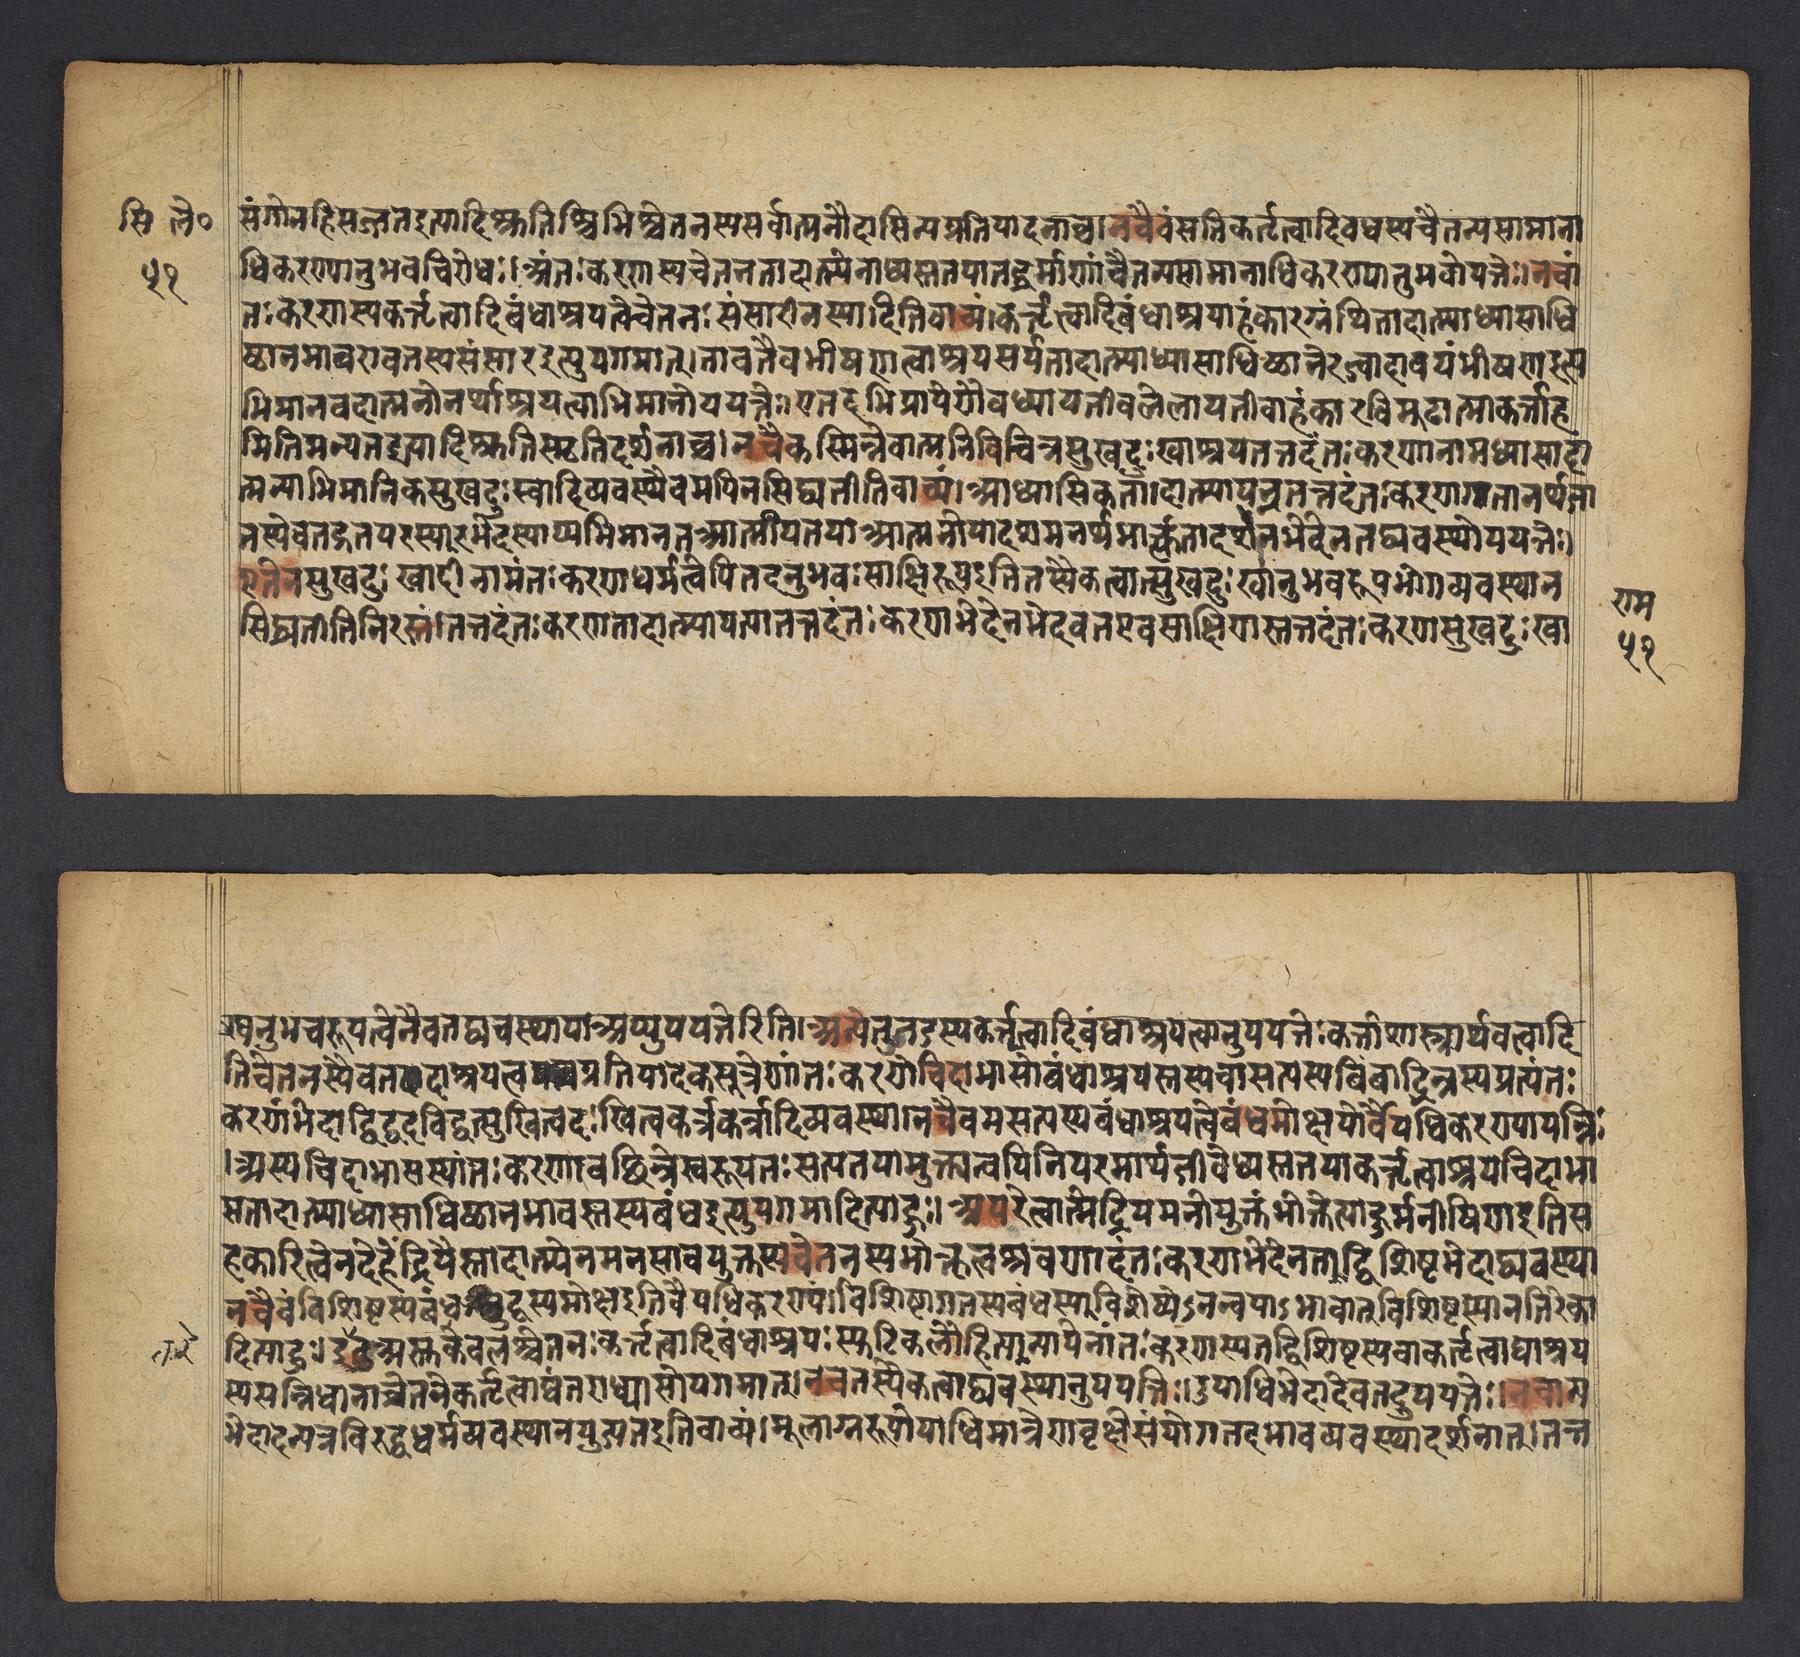 सि ले०
५१
संगोनहिसज्जतइत्यादिश्रुतिभिश्चेतनस्यसर्वात्मनौदासिन्यप्रतिपादनाच्च।नचैवंसतिकर्तृत्वादिबंधस्यचैतन्यसामाना
धिकरण्यानुभवविरोधः।अंतःकरणस्यचेतनतादात्म्येनाध्यस्ततयातद्धर्माणांचैतन्यसामानाधिकरण्यानुभवोपपत्तेः।नचां
तःकरणस्यकर्तृत्वादिबंधाश्रयत्वेचेतनःसंसारीनस्यादितिवाच्यं।कर्तृत्वादिबंधाश्रयाहंकारग्रंथितादात्म्याध्यासाधि
ष्ठानभावएवतस्यसंसारइत्युपगमात्।तावतैवभीषणत्वाश्रयसर्पतादात्म्याध्यासाधिष्ठानेरज्ज्वादावयंभीषणइत्य
भिमानवदात्मनोनर्थाश्रयत्वाभिमानोपपत्तेः।एतदभिप्रायेणैवध्यायतीवलेलायतीवाहंकारविमूढात्माकर्त्ताह
मितिमन्यतइत्यादिश्रुतिस्मृतिदर्शनाच्च।नचैकस्मिन्नेवात्मनिविचित्रसुखदुःखाश्रयतत्तदंतःकरणानामध्यासादा
त्मन्याभिमानिकसुखदुःखादिव्यवस्थैवमपिनसिद्ध्यतीतिवाच्यं।आध्यासिकतादात्म्यापन्नतत्तदंतःकरणगतानर्थजा
तस्येवतद्गतपरस्परभेदस्याप्यभिमानतआत्मीयतयाआत्मनोयादृशमनर्थभाक्त्वंतादृशेनभेदेनतद्व्यवस्थोपपत्तेः।
एतेनसुखदुःखादीनामंतःकरणधर्मत्वेपितदनुभवःसाक्षिरूपइतितस्यैकत्वात्सुखदुःखानुभवरूपभोगव्यवस्थान
सिद्ध्यतीतिनिरस्तं।तत्तदंतःकरणतादात्म्यापत्त्यातत्तदंतःकरणभेदेनभेदवतएवसाक्षिणस्तत्तदंतःकरणसुखदुःखा
राम
५१
द्यनुभवरूपत्वेनैवतद्व्यवस्थायाअप्युपपत्तेरिति।अन्येतुजडस्यकर्तृत्वादिबंधाश्रयत्वानुपपत्तेःकर्त्ताशास्त्रार्थवत्वादि
तिचेतनस्यैवतदाश्रयत्वप्रतिपादकसूत्रेणांतःकरणेचिदाभासोबंधाश्रयस्तस्यचासत्यस्यबिंबाद्भिन्नस्यप्रत्यंतः
करणंभेदाद्विद्वदविद्वत्सुखित्वदुःखित्वकर्त्रकर्त्रादिव्यवस्था।नचैवमसत्यस्यबंधाश्रयत्वेबंधमोक्षयोर्वैयधिकरण्यापत्तिः
।अस्यचिदाभासस्यांतःकरणावच्छिन्नेस्वरूपतःसत्यतयामुक्त्यन्वयिनिपरमार्थजीवेध्यस्ततयाकर्तृत्वाश्रयचिदाभा
सतादात्म्याध्यासाधिष्ठानभावस्तस्यबंधइत्युपगमादित्याहुः।अपरेत्वात्मेंद्रियमनोयुक्तंभोक्तेत्याहुर्मनीषिणइतिस
हकारित्वेनदेहेंद्रियैस्तादात्म्येनमनसाचयुक्तस्यचेतनस्यभोक्तृत्वश्रवणादंतःकरणभेदेनतद्विशिष्टभेदाद्व्यवस्था
नचैवंविशिष्टस्यबंधःशुद्धस्यमोक्षइतिवैयधिकरण्यं।विशिष्टगतस्यबंधस्यविशेष्येऽनन्वयाऽभावात्विशिष्टस्यानतिरेका
दित्याहुः।इतरेतुअस्तुकेवलश्चेतनःकर्तृत्वादिबंधाश्रयःस्फटिकलौहित्यन्यायेनांतःकरणस्यतद्विशिष्टस्यवाकर्तृत्वाद्याश्रय
स्यसन्निधानाच्चेतनेकर्तृत्वाद्यंतराध्यासोपगमात्।नचतस्यैकत्वाद्व्यवस्थानुपपत्तिः।उपाधिभेदादेवतदुपपत्तेः।नचान्य
भेदादन्यत्रविरुद्धधर्मव्यवस्थानयुज्यतइतिवाच्यं।मूलाग्ररूपोपाधिमात्रेणवृक्षेसंयोगतदभावव्यवस्थादर्शनात्।तत्त